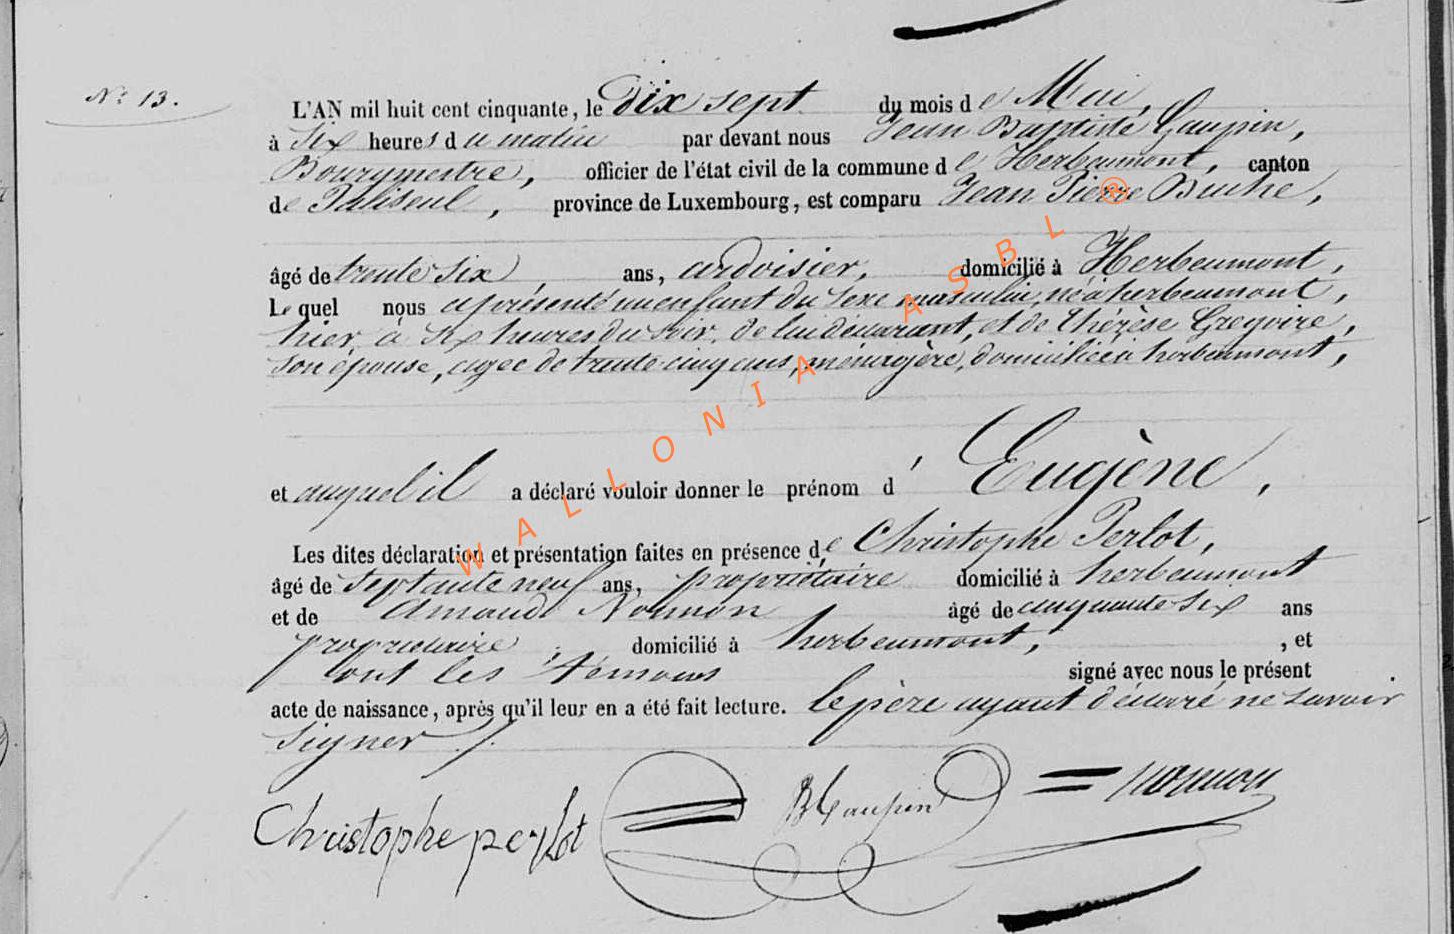 N° 13.
L'AN mil huit cent cinquante, le dix sept du mois de Mai,
à six heures du matin par devant nous Jean Baptiste Gaupin,
Bourgmestre, officier de l'état civil de la commune de Herbeumont, canton
de Paliseul, province de Luxembourg, est comparu Jean Pierre Buche,
âgé de trente six ans, ardoisier, domicilié à Herbeumont,
Lequel nous a présenté un enfant du sexe masculin, né à herbeumont,
hier, à six heures du soir, de lui déclarant, et de Thérèse Gregoire,
son épouse, agée de trente cinq ans, ménagère, domiciliée à herbeumont,
et auquel il a déclaré vouloir donner le prénom d'Eugène,
Les dites déclaration et présentation faites en présence de Christophe Perlot,
âgé de septante neuf ans, propriétaire domicilié à herbeumont
et de Amand Nomon âgé de cinquante six ans
propriétaire, domicilié à herbeumont, , et
ont les témoins signé avec nous le présent
acte de naissance, après qu'il leur en a été fait lecture. le père ayant déclaré ne savoir
signer /.
Christophe perlot JB Gaupin nomon
WALLONIA ASBL ®